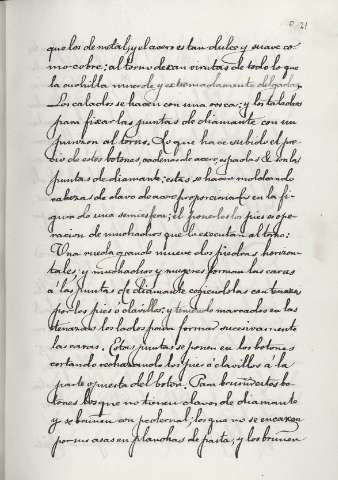 P. 21
que los de metal; y el acero es tan dulce y suave co-
mo cobre: al torno dexan virutas de todo lo que
la cuchilla muerde y extremadamente delgadas.
Los calados se hacen con una rosca: y los taladros
para fixar las puntas de diamante con un
punzon al torno. Lo que hace subido el pre-
cio de estos botones, cadenas de acero, espadas & son las
puntas de diamante: estas se hacen moldeando
cabezas de clavo de acero proporcionales en la fi-
gura de una semiesfera; el ponerlos los pies es ope-
racion de muchachos que la executan al torno:
Una rueda grande mueve dos piedras horizon-
tales; y muchachos y mugeres forman las caras
á las puntas de diamante cogiendolas con tenazas
por los pies ó clavillos: y teniendo marcados en las
tenazas los lados para formar sucesivamente
las caras. Estas puntas se ponen en los botones
cortando rechazando los pies ó clavillos á la
parte opuesta del boton. Para bruñir estos bo-
tones los que no tienen clavos de diamante
y se bruñen con pedernal; los que no se encaxan
por sus asas en planchas de pasta; y los bruñen